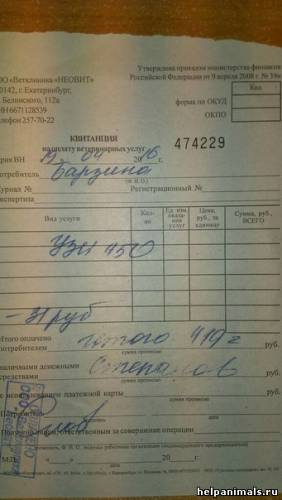 Утверждена приказом министерства финансов
Российской Федерации от 9 апреля 2008 г. № 39н
ОО «Ветклиника «НЕОВИТ»
0142, г. Екатеринбург,
Белинского, 112а
Н 6671128539
елефон 257-70-22
Код
форма по ОКУД
ОКПО
КВИТАНЦИЯ
на оплату ветеринарных услуг
474229
ерия ВН 19 04 2016
отребитель Барзина
(Ф. И. О.)
урнал № Регистрационный №
кспертиза
Вид услуги
Кол-во
Ед. изм. оказания услуг
Цена, руб., за единицу
Сумма, руб., ВСЕГО
УЗИ 450
- 31 руб
Итого оплачено потребителем 419 руб.
сумма прописью
наличными денежными средствами руб.
сумма прописью
с использованием платежной карты руб.
сумма прописью
ответственный за совершение операции
М.П. « » 20 г.
дата
www.helpanimals.ru